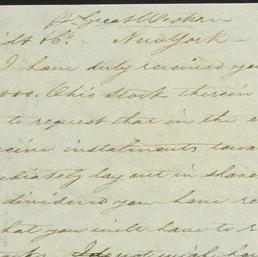 p Great Western
idt & Co. New York -
I have duly received you
000. Ohio Stock therein
to request that in the e
ceive instalments towa
diately lay out in share
dividend you have re
hat you will have to r
I do not wish